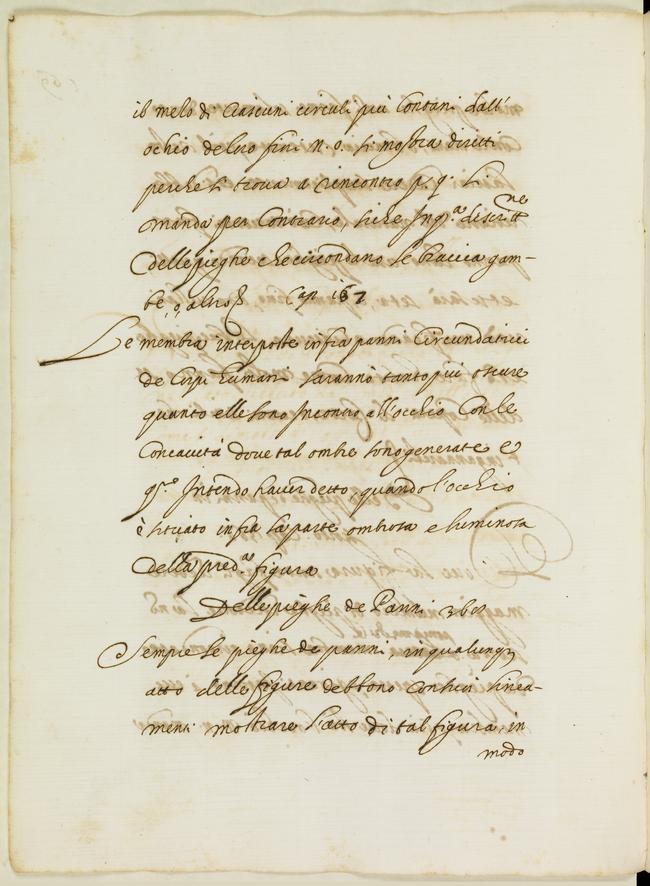 il melo di ciascuni circuli più lontani dall'
ochio de suo fini n. o. si mostra diritti
perche si trova a rincontro p. q. si
manda per Contrario, siche in q.ª descritt ne
Delle pieghe che circondano le braccia gam-
be, o, altro Cap 167
Le membra interposte infra panni Circundatrici
de Corpi humani saranno tanto piu oscure
quanto elle sono Incontro all'occhio Con le
Concavità dove tal ombre sono generate e
q.º Intendo haver detto, quando l'occhio
è situato infra la parte ombrosa e luminosa
della pred.ª figura
Delle pieghe de Panni 368
Sempre le pieghe de panni, in qualunq
atto delle figure debbono con suoi linea-
menti mostrare l'atto di tal figura, in
modo